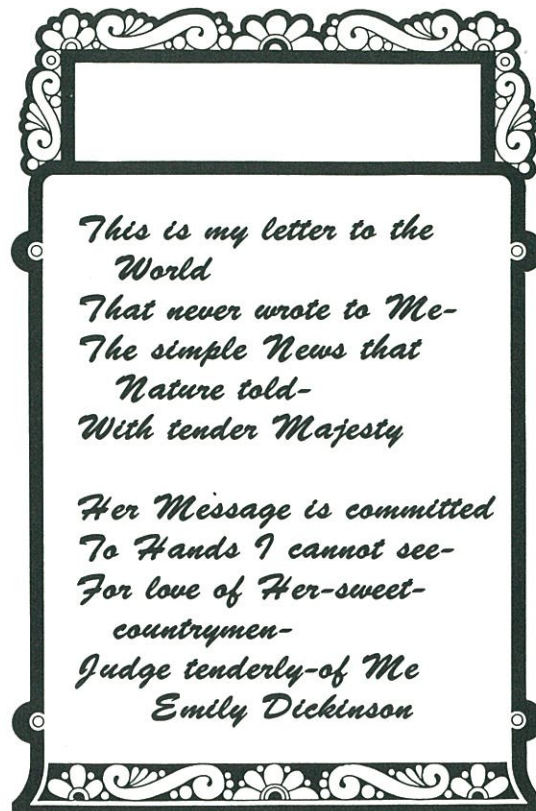 This is my letter to the
World
That never wrote to Me-
The simple News that
Nature told-
With tender Majesty
Her Message is committed
To Hands I cannot see-
For love of Her-sweet-
countrymen-
Judge tenderly-of Me
Emily Dickinson